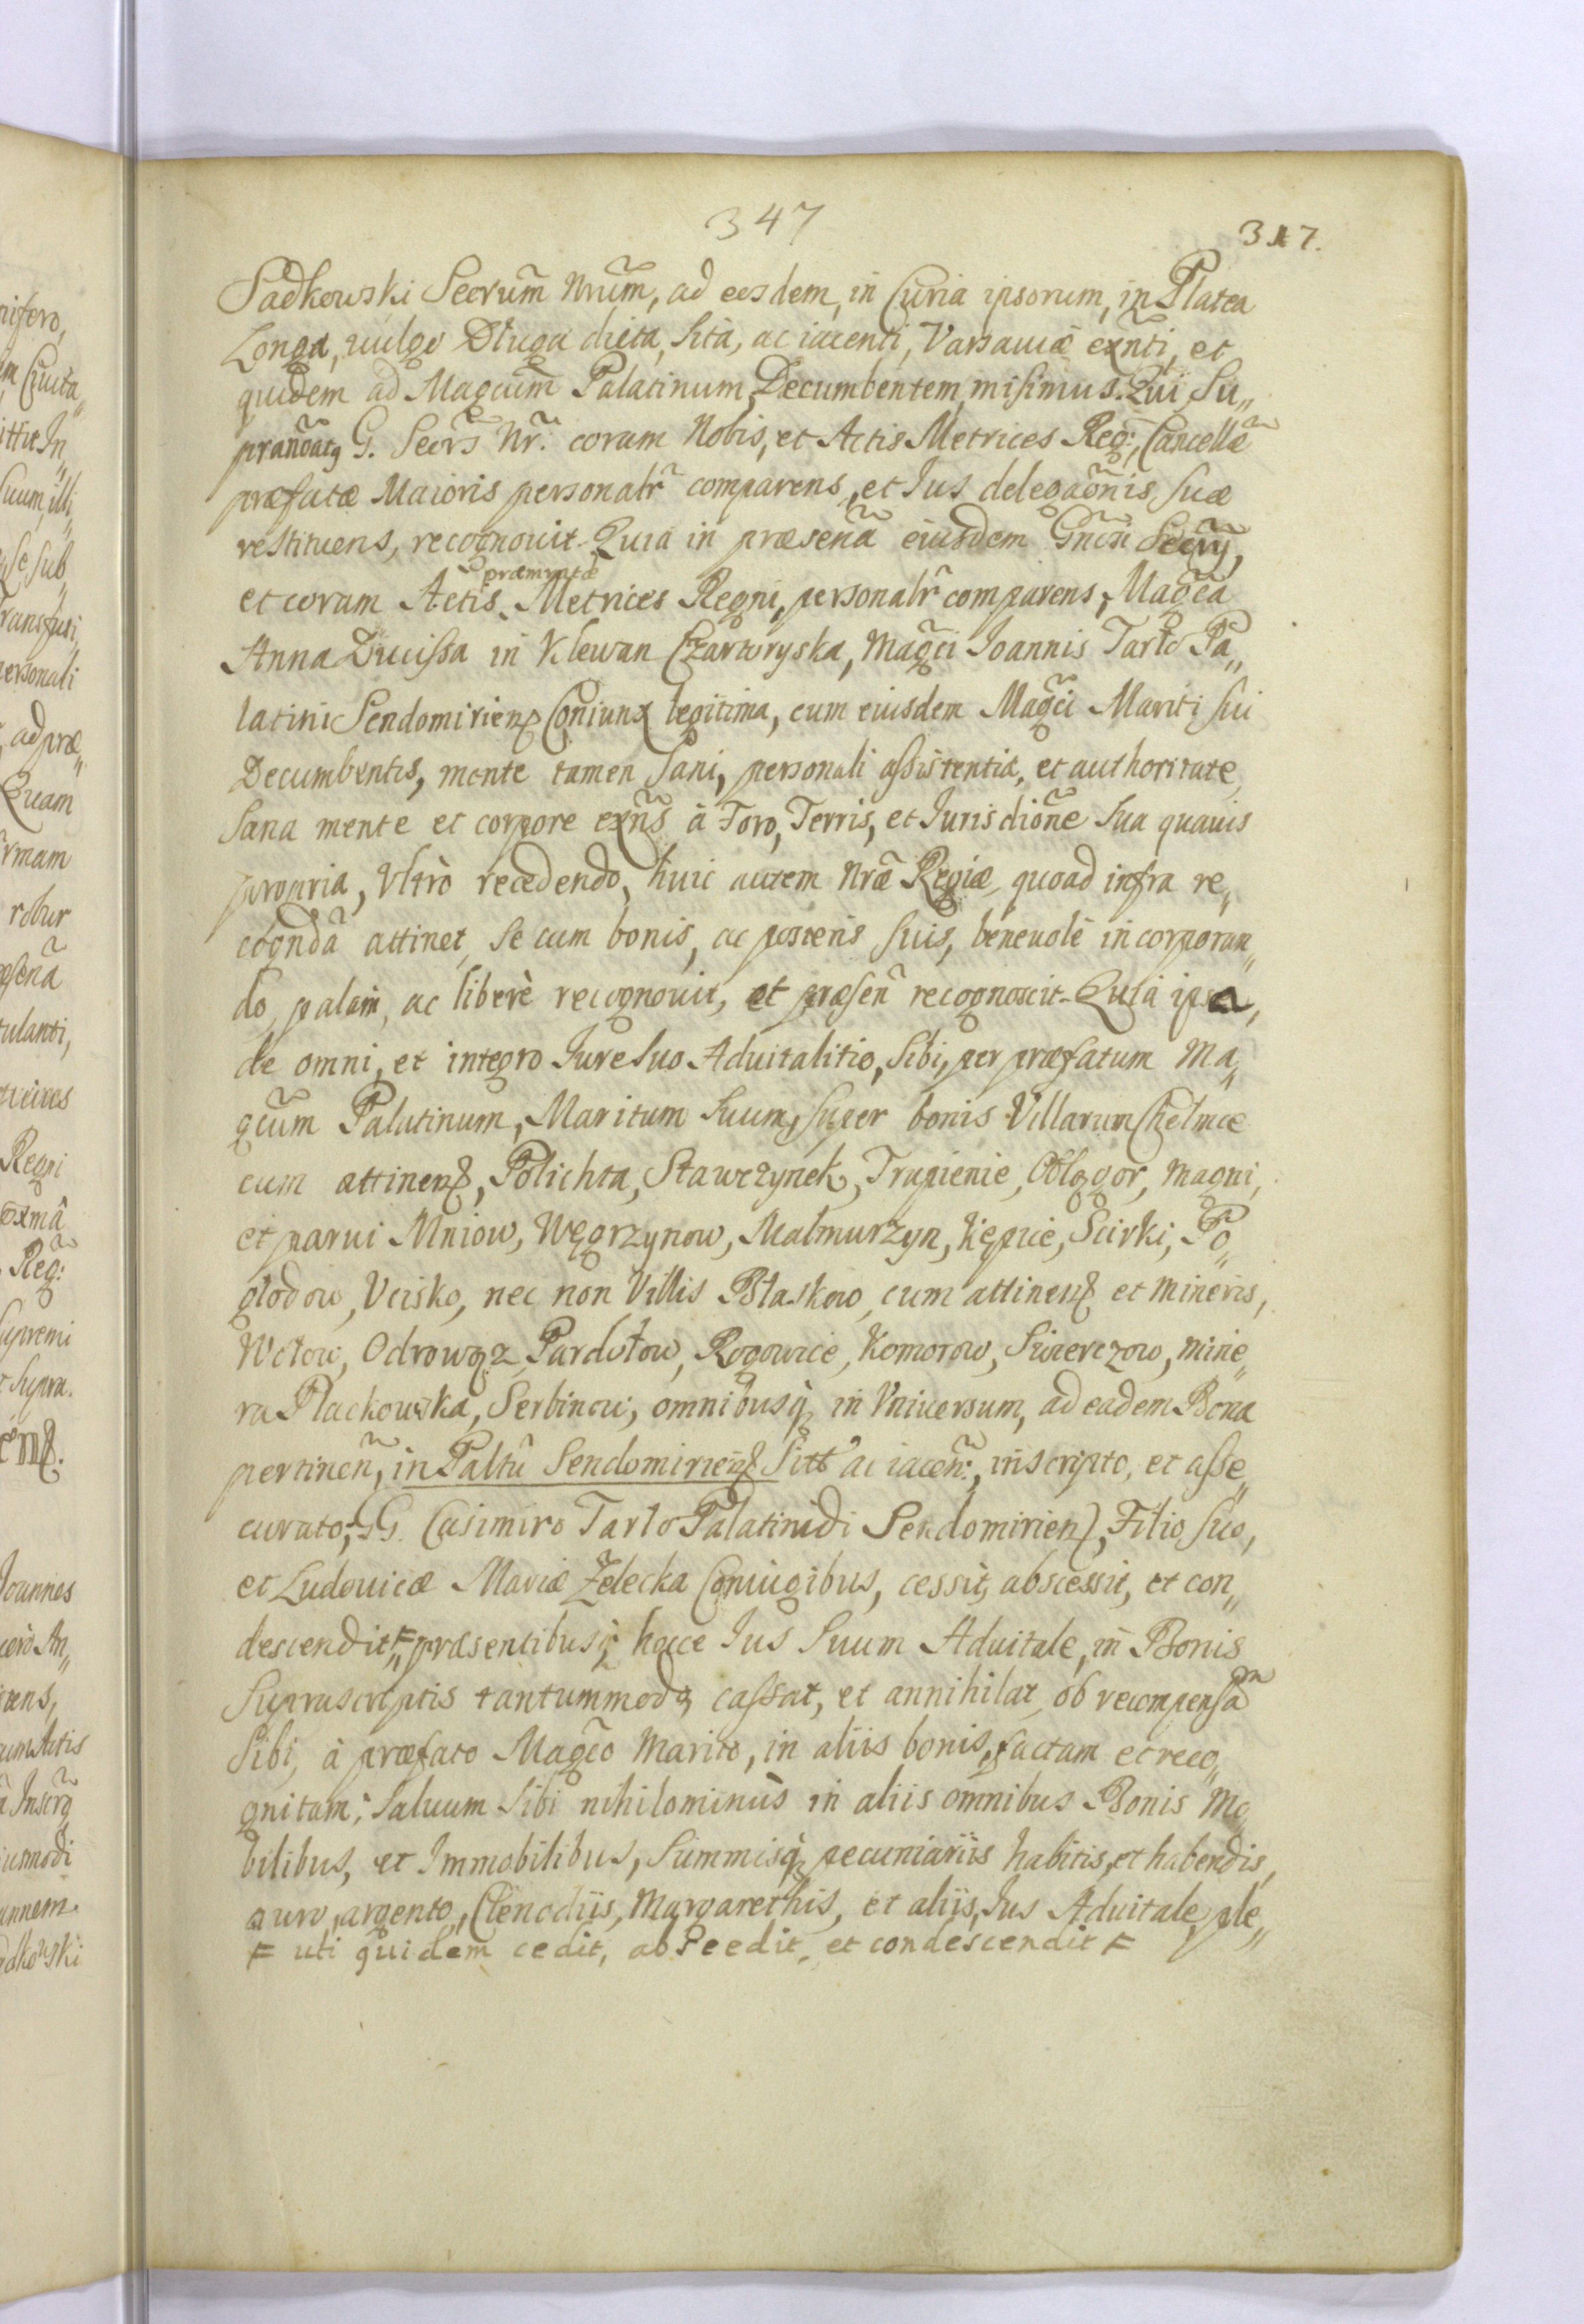 347
347.
Sadkowski Secrũm Nrũm, ad eosdem, in Curia ipsorum, in Platea
Longa, vulgo Długa dicta, sita, ac iacenti, Varsauiæ exñti, et
quidem ad Magcum Palatinum, Decumbentem, misimus. Qui Su„
G. Secrs Nr̃. coram Nobis, et Actis Metrices Reg:, Cancellæ
præfatæ Maioris personalr̃ comparens, et Ius delegaõnis suæ
restituens, recognouit. Quia in præsenã eiusdem Gñsi Secrij,
præmissæ
et coram Actis Metrices Regni, personalr̃ comparens, Magca
Anna Ducissa in Klewan Czartoryska, Magci Ioannis Tarło Pa„
latini Sendomirien Coniunx legitima, cum eiusdem Magci Mariti sui
Decumbentis, mente tamen sani, personali assistentia, et authoritate,
sana mente et corpore exñs à Foro, Terris, et Iurisdiõne sua quauis
propria, Vltrò recedendo, huic autem Nræ Regiæ, quoad infra re„
cogndã attinet, se cum bonis, ac posteris suis, beneuolè incorporan„
do, palam, ac liberè recognouit, et præseñ recognoscit. Quia ipsa,
de omni, et integro Iure suo Aduitalitio, sibi, per præfatum Ma„
gcũm Palatinum, Maritum suum, super bonis Villarum Chelmce
cum attinen, Polichta, Stawczynek, Trupienie, Oblęgor, magni,
et parui Mniow, Węgrzynow, Malmurzyn, Kępcie, Scirki, Po„
głodow, Vcisko, nec non Villis Błaskow, cum attinen et mineris,
Wołow, Odrowąz, Pardołow, Rogowice, Komorow, Swierczow, mine„
ra Plackowska, Serbinow, omnibusq in Vniuersum, ad eadem Bona
pertineñ, in Paltũ Sendomirien Sitt ac iaceñ:, inscripto, et asse„
curato, G. Casimiro Tarło Palatinidi Sendomirien, Filio suo,
et Ludouicæ Mariæ Zelecka Coniugibus, cessit, abscessit, et con„
descendit, præsentibusq hocce Ius suum Aduitale, in Bonis
suprascriptis tantummodo, cassat, et annihilat, ob recompensam
sibi, à præfato Magco Marito, in aliis bonis, factam et reco„
gnitam; Saluum sibi nihilominùs in aliis omnibus Bonis Mo„
bilibus, et Immobilibus, Summisq pecuniariis habitis, et habendis,
auro, argento, Clenodiis, Margarethis, et aliis, Ius Aduitale, ple„
F uti quidem cedit, abscedit, et condescendit F